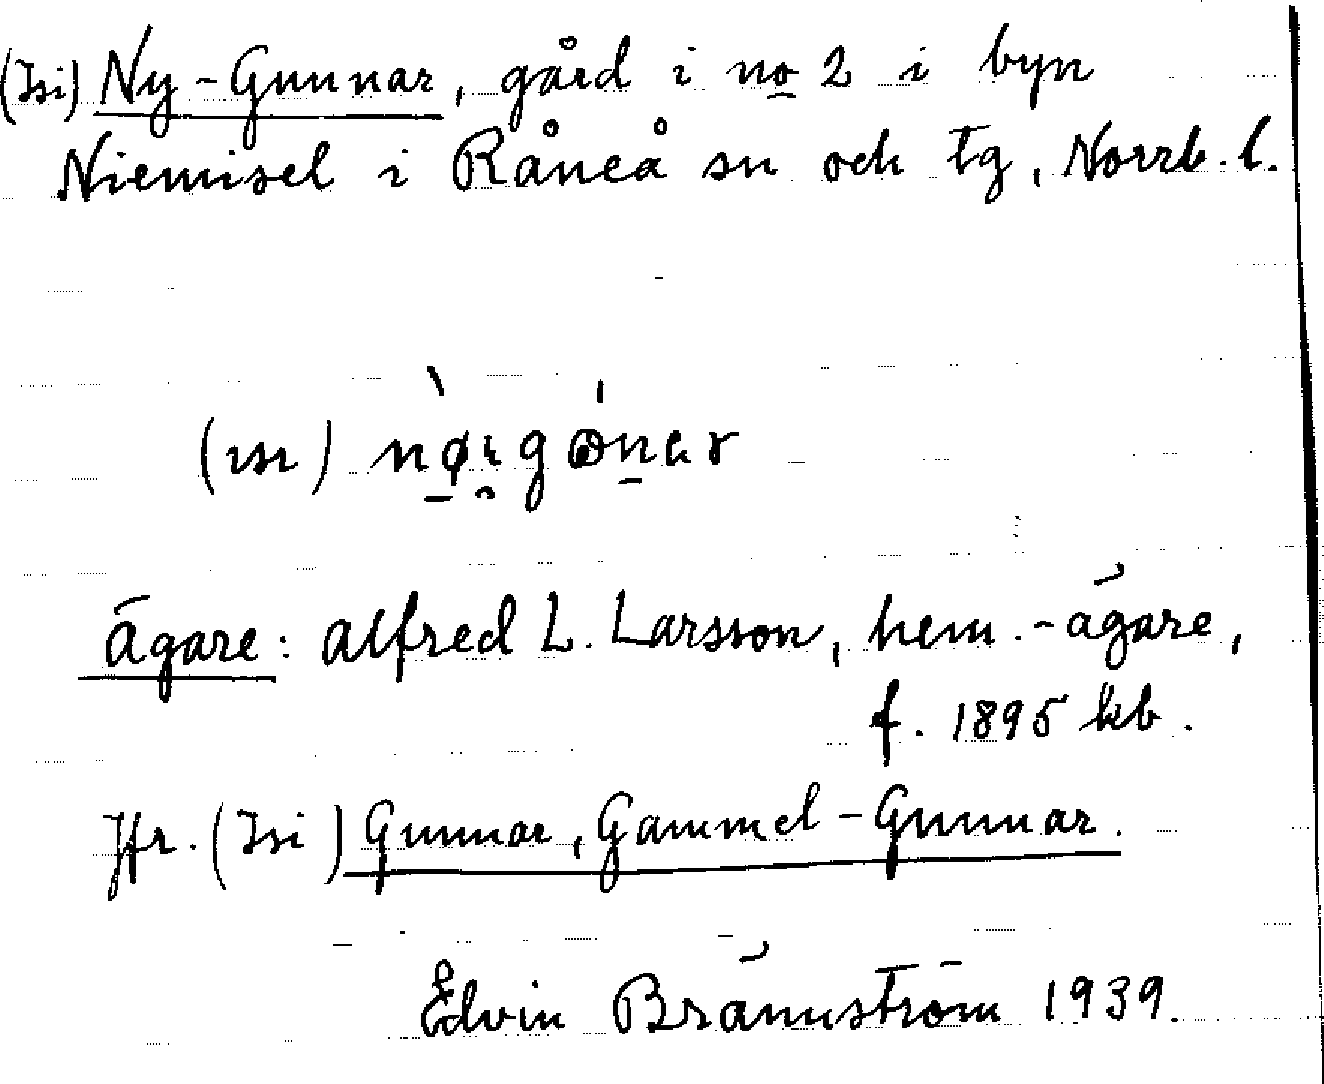 (Isi) Ny-Gunnar, gård i no 2 i byn
Niemisel i Råneå sn och tg, Norrb. l.
(ɪsɪ)
Ägare: Alfred L. Larsson, hem.-ägare,
f. 1895 kb.
Jfr. (Isi) Gunnar, Gammel-Gunnar.
Edvin Brännström 1939.